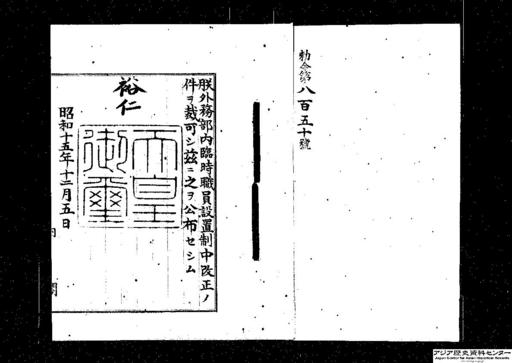 勅令第八百五十號
朕外務部内臨時職員設置制中改正ノ
件ヲ裁可シ茲ニ之ヲ公布セシム
裕仁
天皇
御璽
昭和十五年十二月五日
アジア歴史資料センター
Japan Center for Asian Historical Records